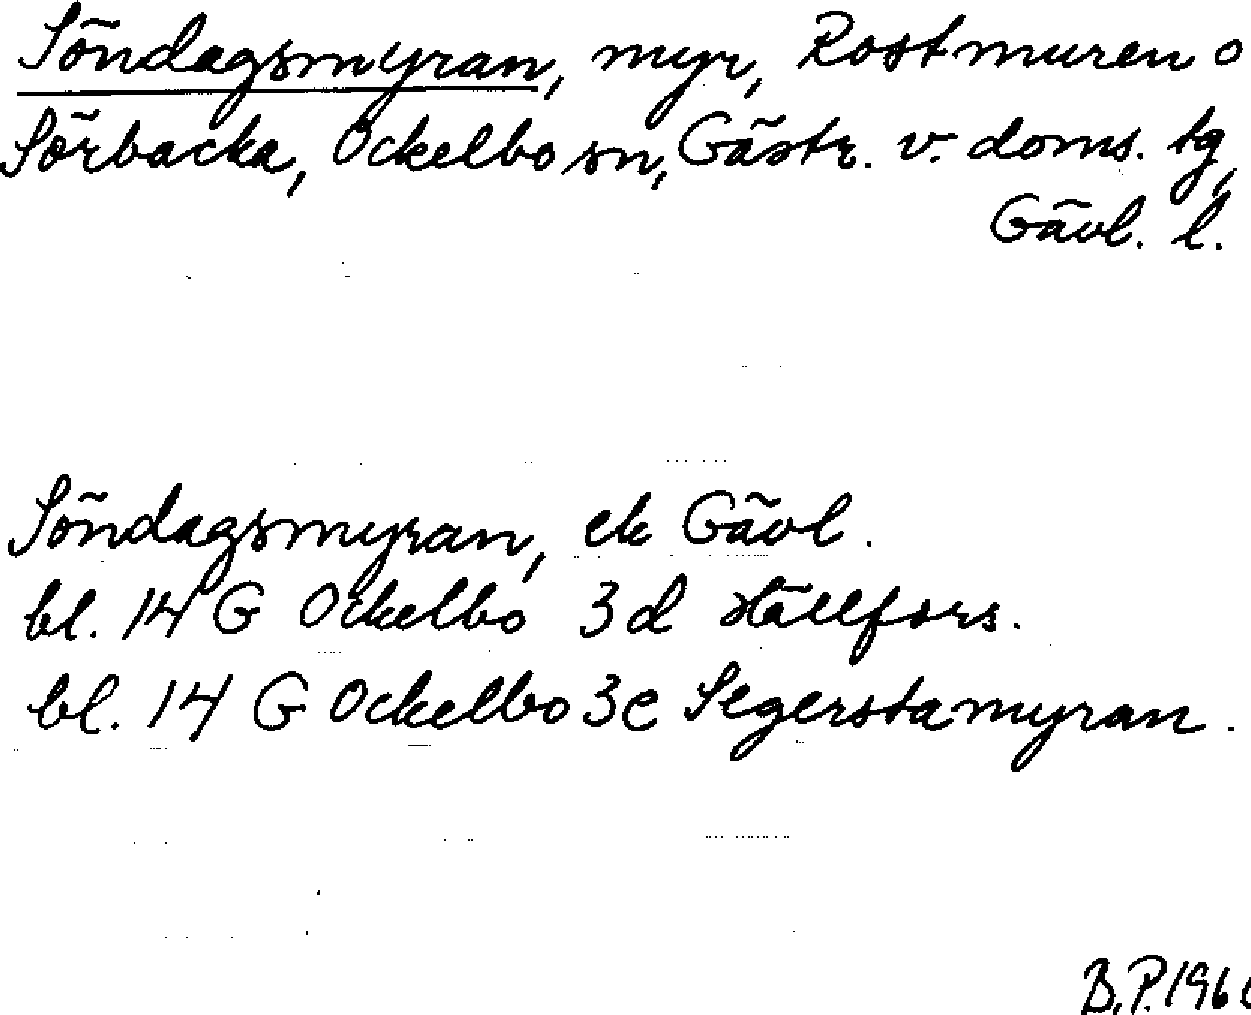 Söndagsmyran, myr, Rostmuren o
Sörbacka, Ockelbo sn, Gästr. v. doms. tg,
Gävl. l.
Söndagsmyran, ek Gävl.
bl. 14 G Ockelbo 3d Hällfors.
bl. 14 G Ockelbo 3e Segerstamyran.
B.P.